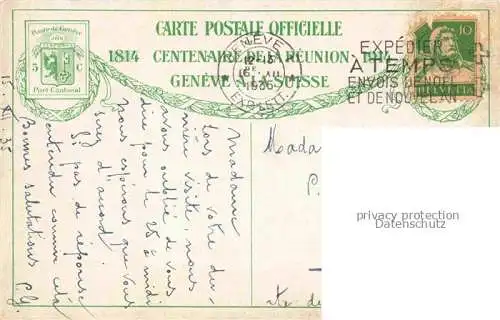 CARTE POSTALE OFFICIELLE
1814 CENTENAIRE DE LA RÉUNION 1914
GENÈVE SUISSE
Poste de Genève
5 C
Port Cantonal
GENÈVE
12-15
16. XII
1935
EXP. LETT.
EXPÉDIER
À TEMPS
ENVOIS DE NOËL
ET DE NOUVEL AN
10
HELVETIA
15 XII 35
Madame
lors de votre der-
nière visite, nous
avons oublié de vous
dire pour le 25 à midi
nous espérons que vous
serez d'accord
Si pas de réponse
entendu comme cela
Bonnes salutations
P.G.
Mada
privacy protection
www.ansichtskarten-center.de